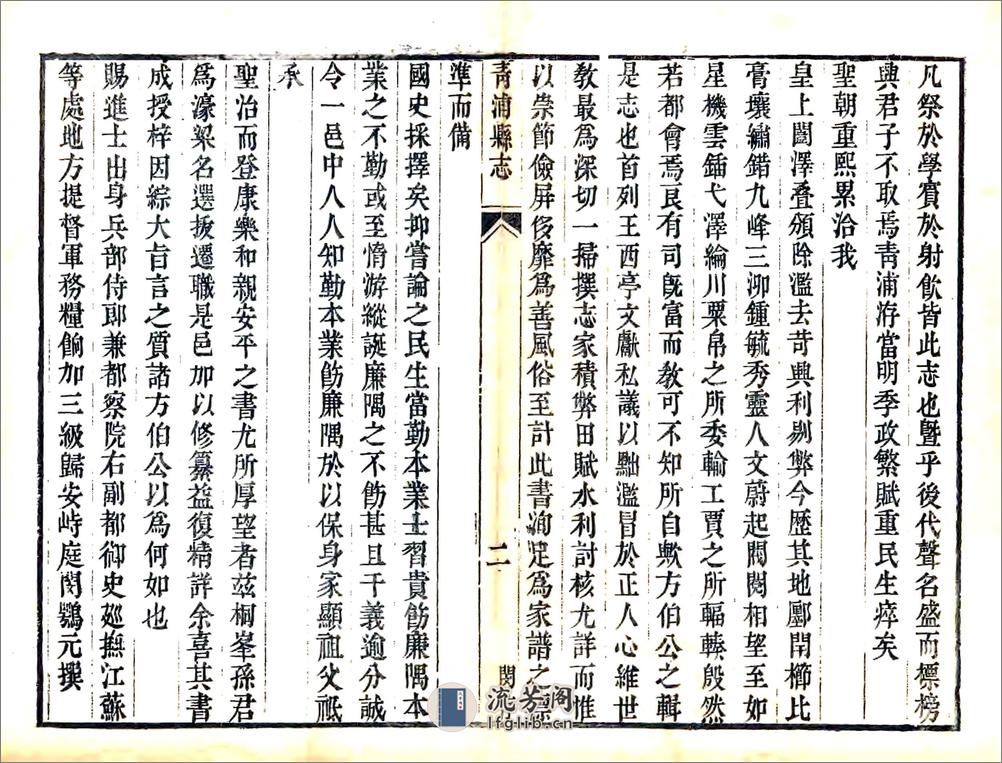 凡祭於學賓於射飲皆此志也曁乎後代聲名盛而標榜
興君子不取焉靑浦洊當明季政繁賦重民生瘁矣
聖朝重熙累洽我
皇上闓澤叠頒除濫去苛興利剔弊今歴其地酈閈櫛比
膏壤繡錯九峰三泖鍾毓秀靈人文蔚起閥閱相望至如
星機雲鍤弋澤綸川粟帛之所委輸工賈之所輻輳殷然
若都會焉良有司旣富而敎可不知所自歟方伯公之輯
是志也首列王西亭文獻私議以黜濫冒於正人心維世
敎最爲深切一掃撰志家積弊田賦水利討核尤詳而惟
以崇節儉屏侈靡爲善風俗至計此書洵足爲家譜之
靑浦縣志
二
閔
準而備
國史採擇矣抑嘗論之民生當勤本業士習貴飭廉隅本
業之不勤或至惰游縱誕廉隅之不飭甚且干義逾分誠
令一邑中人人知勤本業飭廉隅於以保身家顯祖父祗
承
聖治而登康樂和親安平之書尤所厚望者兹桐峯孫君
爲濠梁名選拔遷職是邑加以修纂益復精詳余喜其書
成授梓因綜大旨言之質諸方伯公以爲何如也
賜進士出身兵部侍郎兼都察院右副都御史廵撫江蘇
等處地方提督軍務糧餉加三級歸安峙庭閔鶚元撰
流芳阁
lfglib.cn